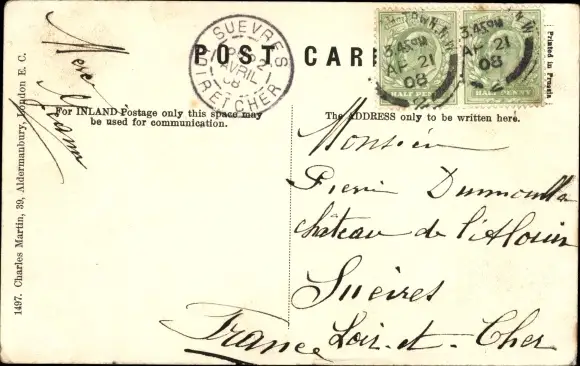 POST CARD
Printed in Prussia
SUEVRES
AVRIL
08
LOIR ET CHER
3.45PM
AP 21
08
3.45PM
AP 21
08
N.W.
HALF PENNY
HALF PENNY
For INLAND Postage only this space may
be used for communication.
The ADDRESS only to be written here.
1497. Charles Martin, 39, Aldermanbury, London E. C.
Monsieur
Pierre
Château de l'
Suèvres
Loir-et-Cher
France